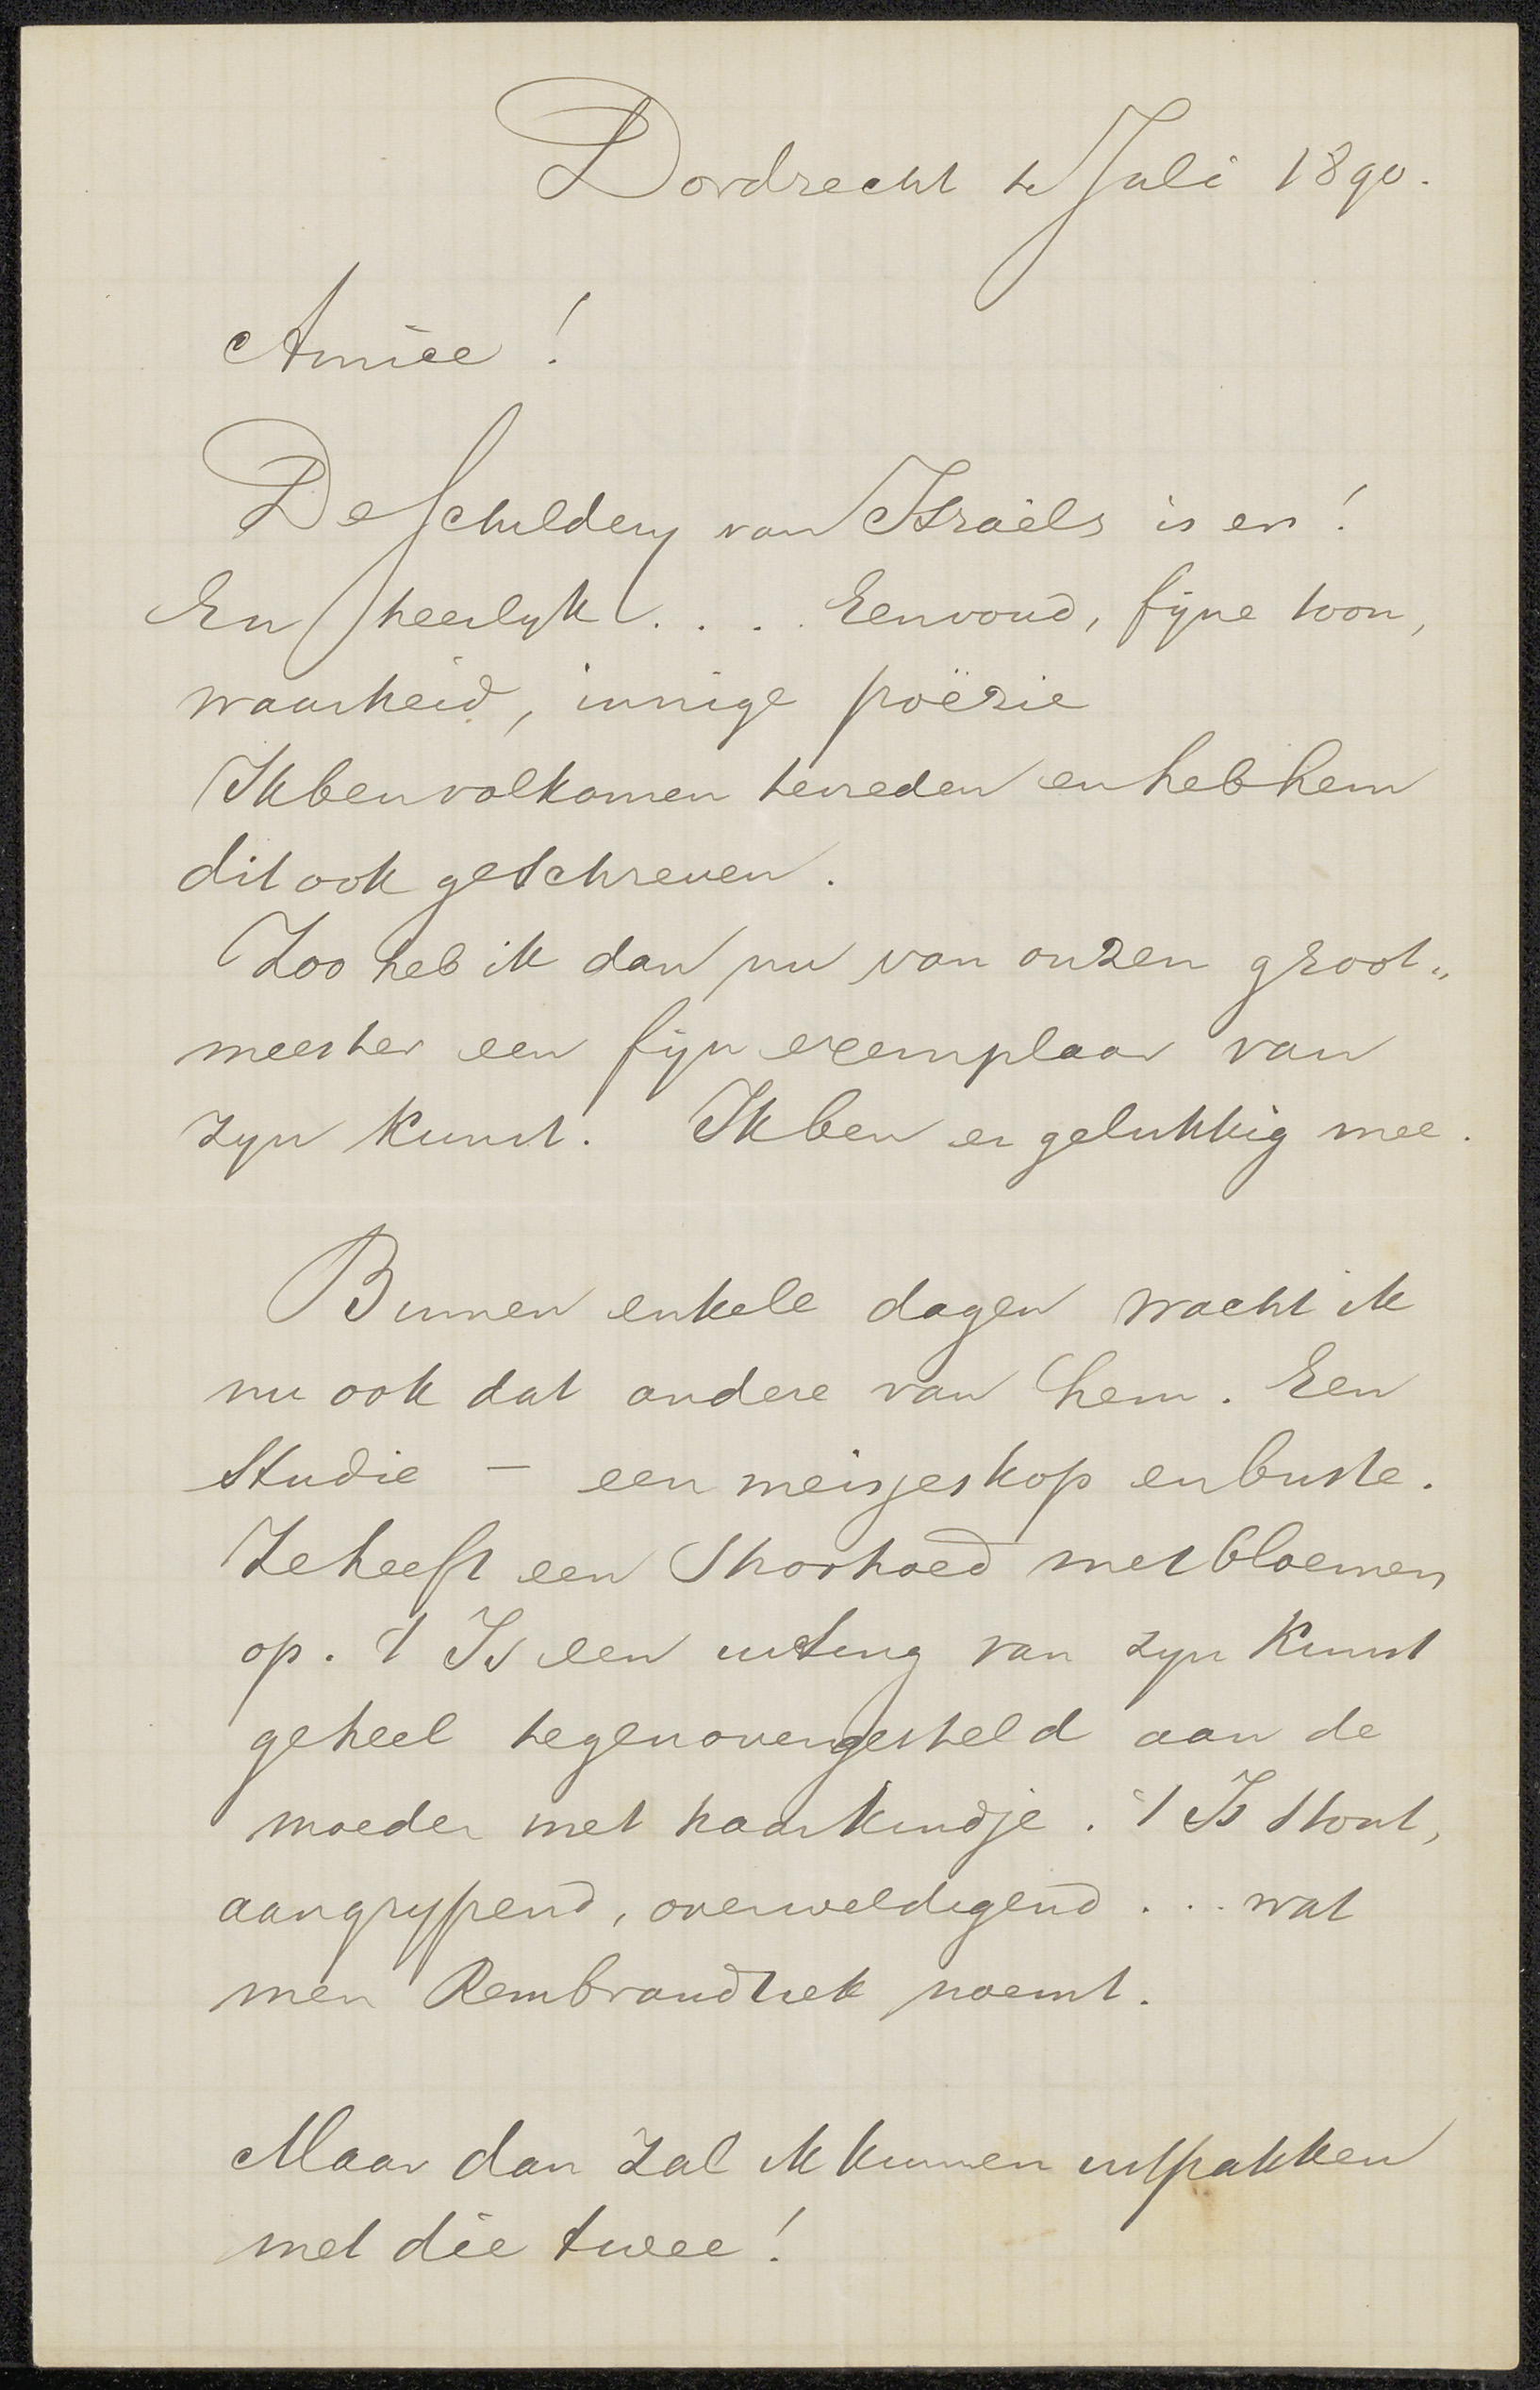 Dordrecht 4 Juli 1890.
Amice!
De Schildery van Israëls is er!
En heerlyk . . . . Eenvoud, fyne toon,
waarheid, innige poëzie
Ik ben volkomen tevreden en heb hem
dit ook geschreven.
Zoo heb ik dan nu van onzen groot„
meester een fyn exemplaar van
zyn kunst. Ik ben er gelukkig mee.
Binnen enkele dagen wacht ik
nu ook dat andere van hem. Een
Studie – een meisjeskop en buste.
Ze heeft een Stroohoed met bloemen
op. 't Is een uiting van zyn kunst
geheel tegenovergesteld aan de
moeder met haar kindje. 't Is stout,
aangrypend, overweldigend . . . wat
men Rembrandtiek noemt.
Maar dan zal ik kunnen uitpakken
met die twee!